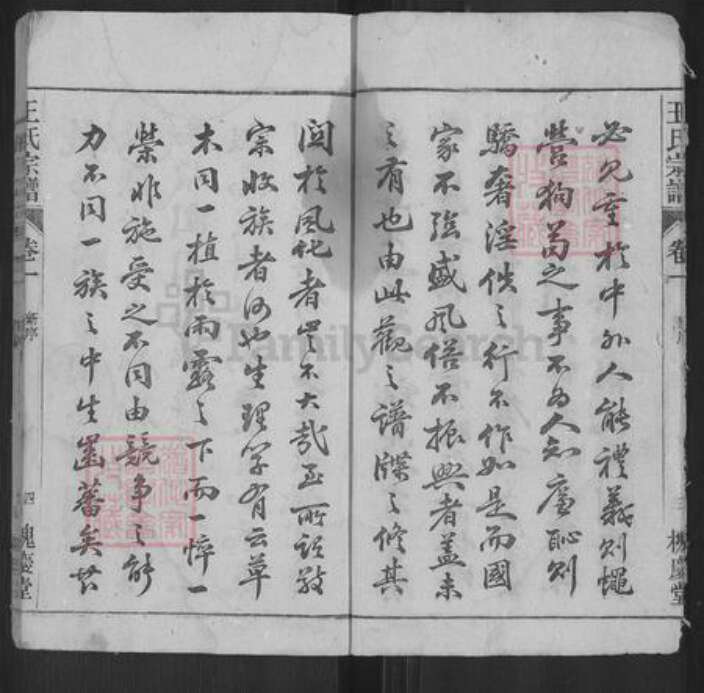 王氏宗譜 卷一 槐慶堂
必見重於中外人能禮義則蠅
營狗苟之事不為人知廉恥則
驕奢淫佚之行不作如是而國
家不強盛風俗不振興者蓋未
之有也由此觀之譜牒之修其
関於風化者豈不大哉至所謂敬
宗收族者何也生理學有云草
木同一植於雨露之下而一悴一
榮非施受之不同由競爭之能
力不同一族之中生齒蕃矣苦
王氏宗譜 卷一 四 槐慶堂
FamilySearch